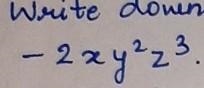 Write down
- 2xy²z³.